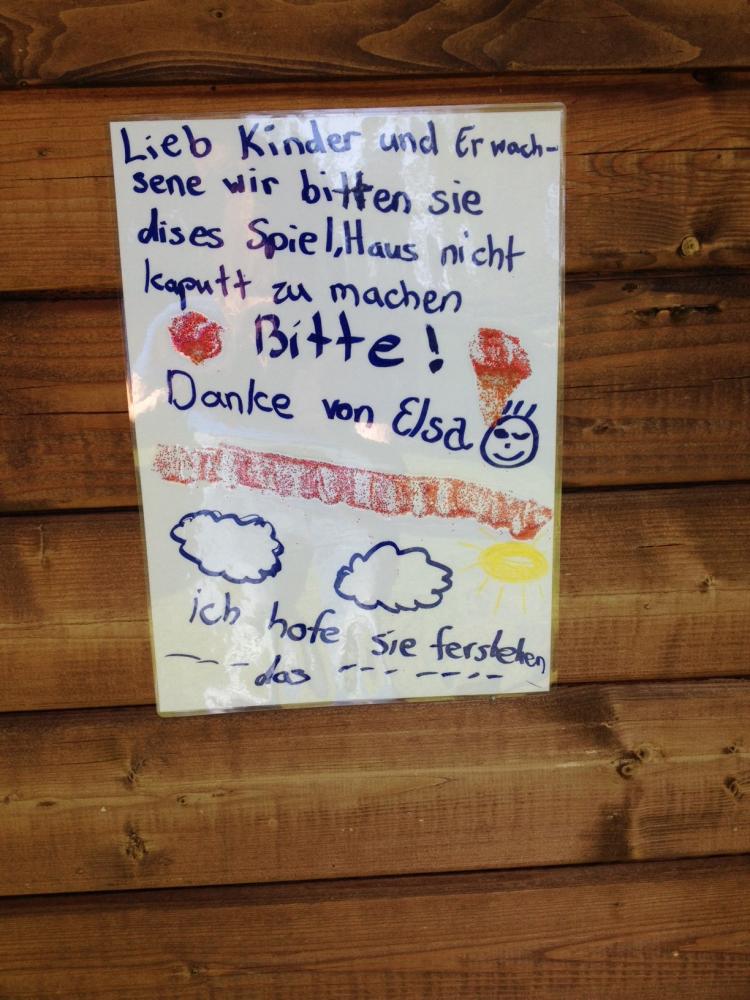 Lieb Kinder und Erwach-
sene wir bitten sie
dises Spiel,Haus nicht
kaputt zu machen
Bitte!
Danke von Elsa
ich hofe sie ferstehen
das